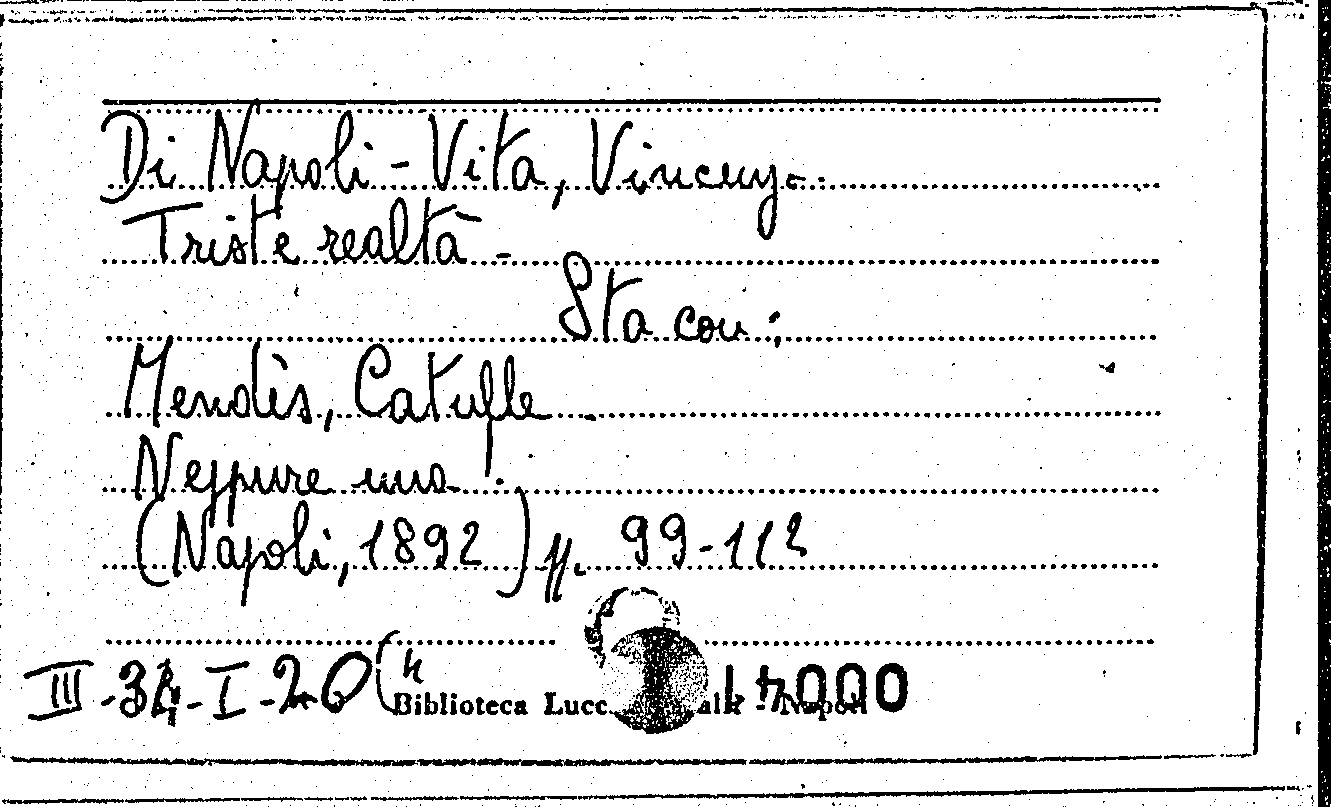 Di Napoli-Vita, Vincenzo.
Triste realtà -
Sta con:
Mendès, Catulle.
Neppure una!
(Napoli, 1892) pp. 99-112
III-34-I-20(4
Biblioteca Lucc - Napoli